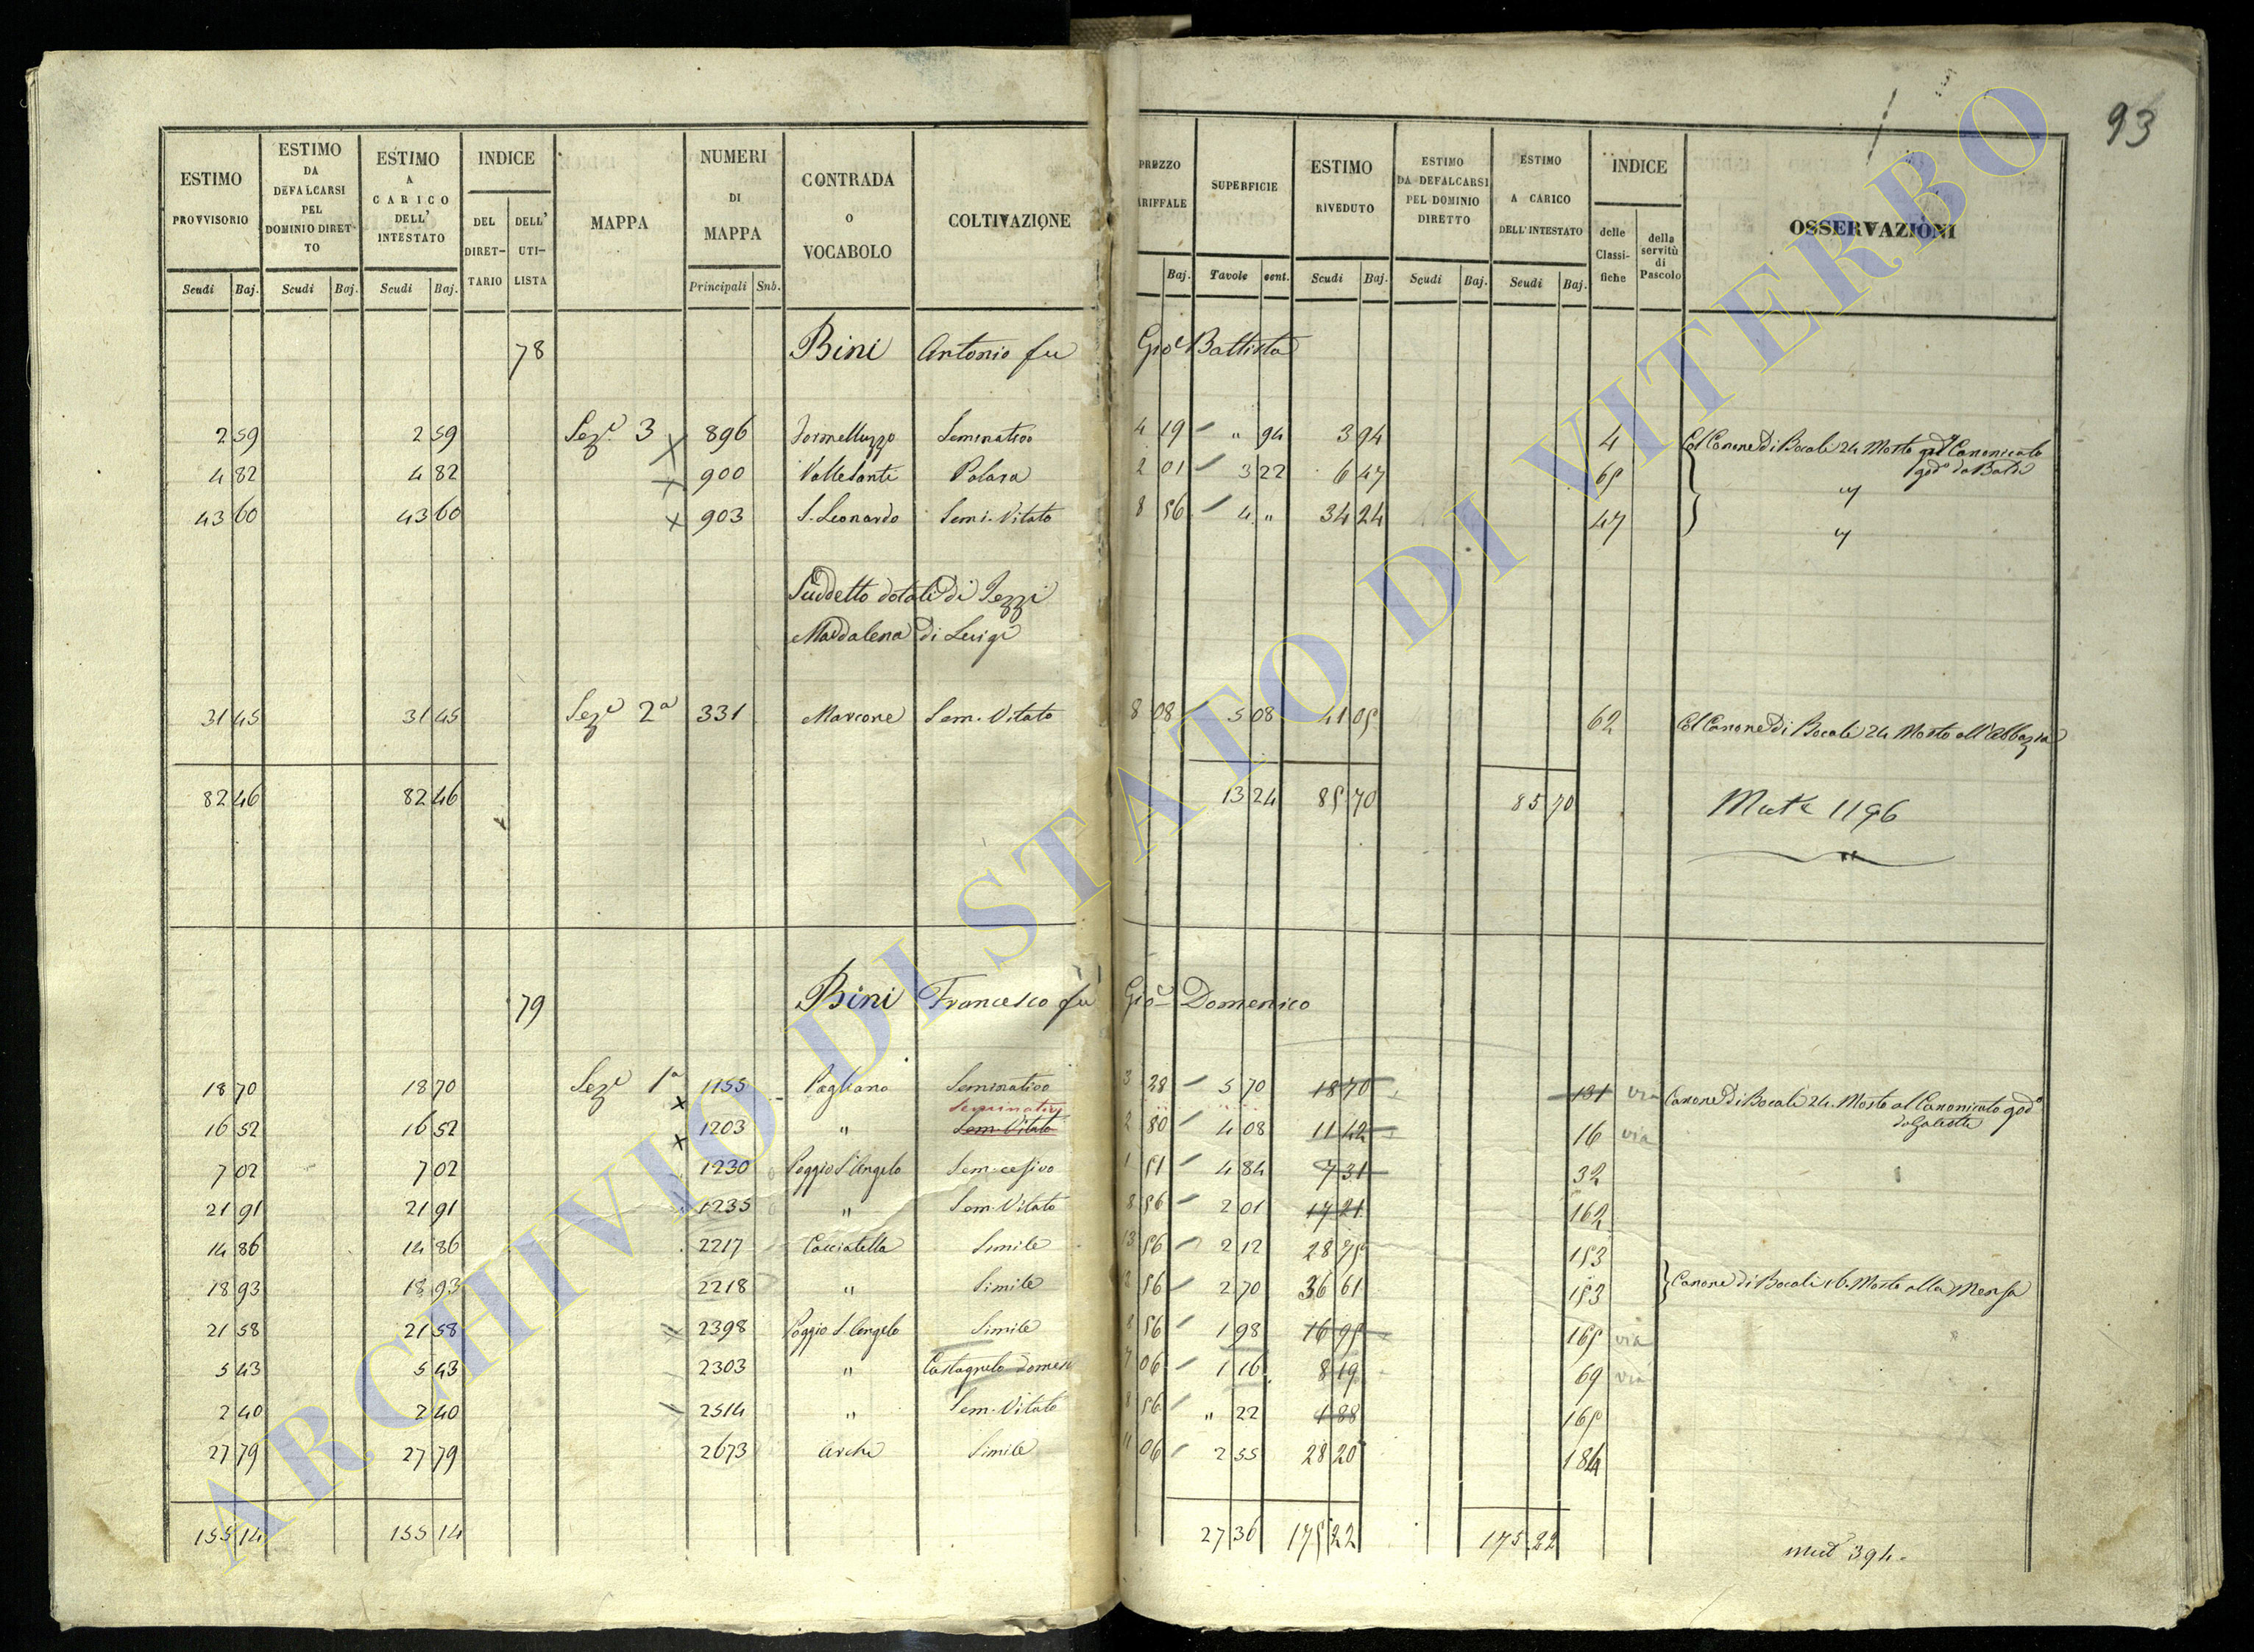 93
ESTIMO PROVVISORIO Scudi Baj.
ESTIMO DA DEFALCARSI PEL DOMINIO DIRETTO Scudi Baj.
ESTIMO A CARICO DELL' INTESTATO Scudi Baj.
INDICE DEL DIRETTARIO DELL' UTILISTA
MAPPA
NUMERI DI MAPPA Principali Sub.
CONTRADA O VOCABOLO
COLTIVAZIONE
PREZZO TARIFFALE Baj.
SUPERFICIE Tavole cent.
ESTIMO RIVEDUTO Scudi Baj.
ESTIMO DA DEFALCARSI PEL DOMINIO DIRETTO Scudi Baj.
ESTIMO A CARICO DELL' INTESTATO Scudi Baj.
INDICE delle Classifiche della servitù di Pascolo
OSSERVAZIONI
78 Bini Antonio fu Gioe Battista
2 59 2 59 Seze 3 896 Seminativo 4 19 " 94 3 94 4 Col Canone di Bocali 24 Mosto Canonicato
god° da
4 82 4 82 900 Valle Santi Polara 2 01 3 22 6 47 65 "
43 60 43 60 903 S. Leonardo Semi. Vitato 8 56 4 " 34 24 47 "
Suddetto dotali di Pezzi
Maddalena di Luigi
31 45 31 45 Seze 2a 331 Marcone Sem. Vitato 8 08 5 08 41 05 62 Col Canone di Bocali 24 Mosto all'Abbazia
82 46 82 46 13 24 85 70 85 70 Mut. 1196
79 Bini Francesco fu Gioe Domenico
18 70 18 70 Seze 1a 1155 Pagliano Seminativo 3 28 5 70 18 70 131 via Canone di Bocali 24. Mosto al Canonicato god°
Seminativo
16 52 16 52 1203 " Sem. Vitato 2 80 4 08 11 42 16 via
7 02 7 02 1230 Poggio S. Angelo Sem. cesivo 1 51 4 84 7 31 32
21 91 21 91 1235 " Sem. Vitato 8 56 2 01 17 21 162
14 86 14 86 2217 Cacciatella Simile 13 56 2 12 28 75 153
18 93 18 93 2218 " Simile 56 2 70 36 61 153 Canone di Bocali 16. Mosto alla Mensa
21 58 21 58 2398 Poggio S. Angelo Simile 8 56 1 98 16 95 165 via
5 43 5 43 2303 " Castagneto domest 7 06 1 16 8 19 69 via
2 40 2 40 2514 " Sem. Vitato 8 56 " 22 1 88 165
27 79 27 79 2673 Arche Simile 11 06 2 55 28 20 184
155 14 155 14 27 36 175 22 175 22 mut 394.
ARCHIVIO DI STATO DI VITERBO